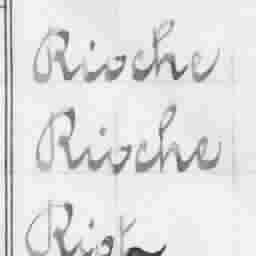 Rioche
Rioche
Riot